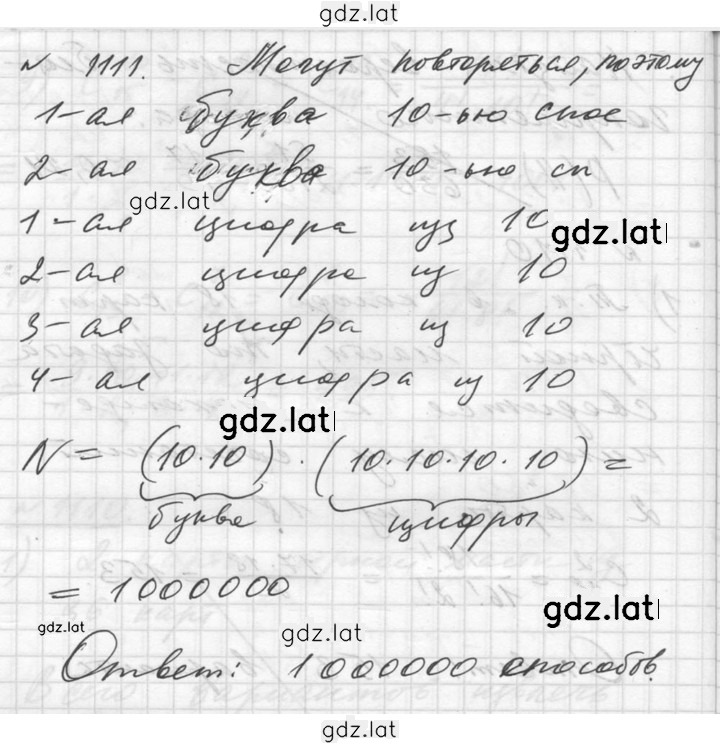 gdz.lat
№ 1111. Могут повторяться, поэтому
1-ая буква 10-ью спос
2-ая буква 10-ью сп
gdz.lat
1-ая цифра из 10
gdz.lat
2-ая цифра из 10
3-ая цифра из 10
4-ая цифра из 10
gdz.lat
N = (10·10) · (10·10·10·10) =
буква цифры
= 1000000
gdz.lat
gdz.lat
gdz.lat
Ответ: 1000000 способов.
gdz.lat